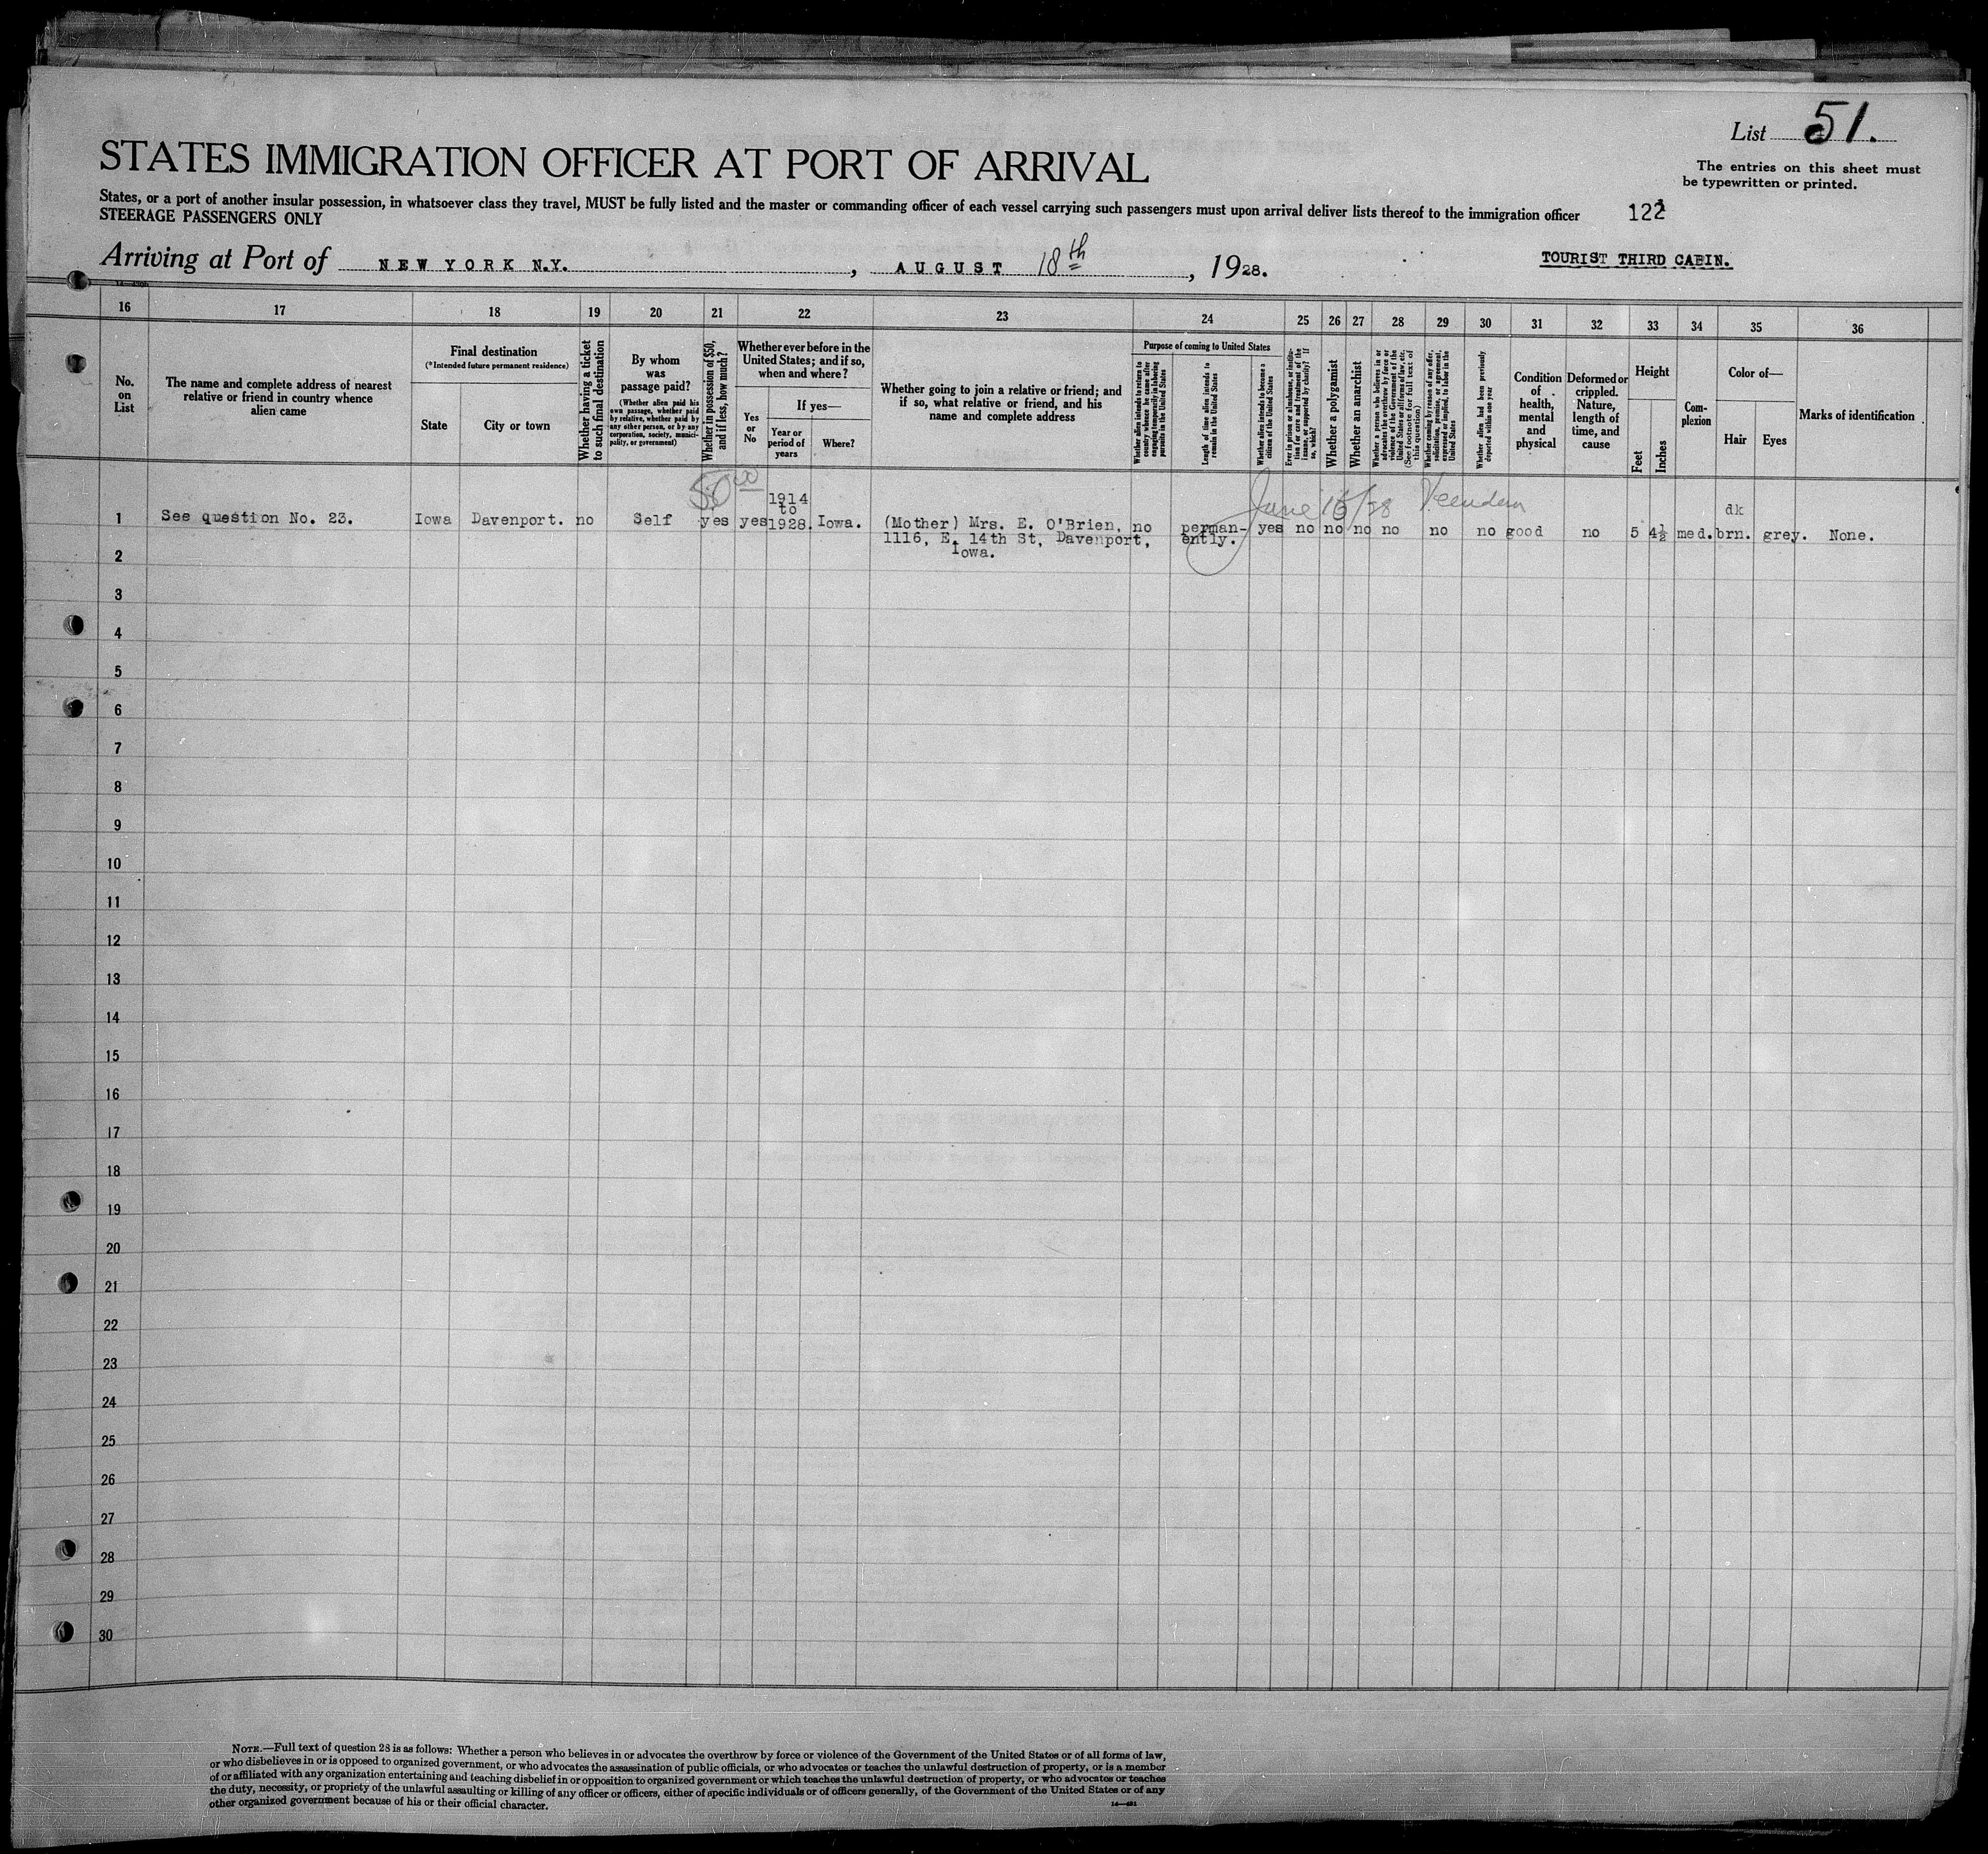 List 51.
STATES IMMIGRATION OFFICER AT PORT OF ARRIVAL
The entries on this sheet must
be typewritten or printed.
States, or a port of another insular possession, in whatsoever class they travel, MUST be fully listed and the master or commanding officer of each vessel carrying such passengers must upon arrival deliver lists thereof to the immigration officer
STEERAGE PASSENGERS ONLY
122
Arriving at Port of NEW YORK N.Y., AUGUST 18th, 1928.
TOURIST THIRD CABIN.
16 17 18 19 20 21 22 23 24 25 26 27 28 29 30 31 32 33 34 35 36
No.
on
List
The name and complete address of nearest
relative or friend in country whence
alien came
Final destination
(*Intended future permanent residence)
State
City or town
Whether having a ticket
to such final destination
By whom
was
passage paid?
(Whether alien paid his
own passage, whether paid
by relative, whether paid by
any other person, or by any
corporation, society, munici-
pality, or government)
Whether in possession of $50,
and if less, how much?
Whether ever before in the
United States; and if so,
when and where?
Yes
or
No
If yes—
Year or
period of
years
Where?
Whether going to join a relative or friend; and
if so, what relative or friend, and his
name and complete address
Purpose of coming to United States
Whether alien intends to return to
country whence he came after
engaging temporarily in laboring
pursuits in the United States
Length of time alien intends to
remain in the United States
Whether alien intends to become a
citizen of the United States
Ever in prison or almshouse, or institu-
tion for care and treatment of the
insane, or supported by charity? If
so, which?
Whether a polygamist
Whether an anarchist
Whether a person who believes in or
advocates the overthrow by force or
violence of the Government of the
United States or all forms of law, etc.
(See footnote for full text of
this question)
Whether coming by reason of any offer,
solicitation, promise, or agreement,
expressed or implied, to labor in the
United States
Whether alien had been previously
deported within one year
Condition
of
health,
mental
and
physical
Deformed or
crippled.
Nature,
length of
time, and
cause
Height
Feet
Inches
Com-
plexion
Color of—
Hair
Eyes
Marks of identification
50 00
June 16/28 Veendam
1 See question No. 23. Iowa Davenport. no Self yes yes 1914 to 1928. Iowa. (Mother) Mrs. E. O'Brien, no perman- yes no no no no no no good no 5 4½ med. dk brn. grey. None.
1116, E. 14th St, Davenport, ently.
Iowa.
2
3
4
5
6
7
8
9
10
11
12
13
14
15
16
17
18
19
20
21
22
23
24
25
26
27
28
29
30
NOTE.—Full text of question 28 is as follows: Whether a person who believes in or advocates the overthrow by force or violence of the Government of the United States or of all forms of law,
or who disbelieves in or is opposed to organized government, or who advocates the assassination of public officials, or who advocates or teaches the unlawful destruction of property, or is a member
of or affiliated with any organization entertaining and teaching disbelief in or opposition to organized government or which teaches the unlawful destruction of property, or who advocates or teaches
the duty, necessity, or propriety of the unlawful assaulting or killing of any officer or officers, either of specific individuals or of officers generally, of the Government of the United States or of any
other organized government because of his or their official character.